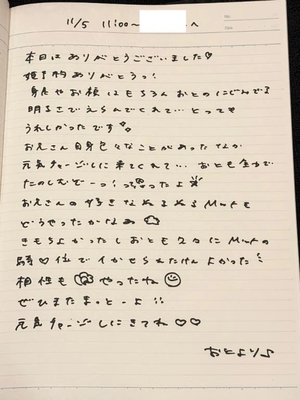 11/5 11:00〜 へ
本日はありがとうございました♡
指名ありがとうっ!
身長やお顔はもちろん おとのにじんでる
明るさでえらんでくれて… とっても
うれしかったです
お兄さん自身色々なことがあったなか
元気チャージしに来てくれて… おとも全力で
たのしむぞーっ! って思ったよ
お兄さんの好きななめなめMaxも
どうやったかなぁ
きもちよかったしおともタタにMaxの
騎♡位でイかせられたけんよかった!
相性も やったね
ぜひまたまっとーよ!!
元気チャージしにきてね♡♡
おとより♪